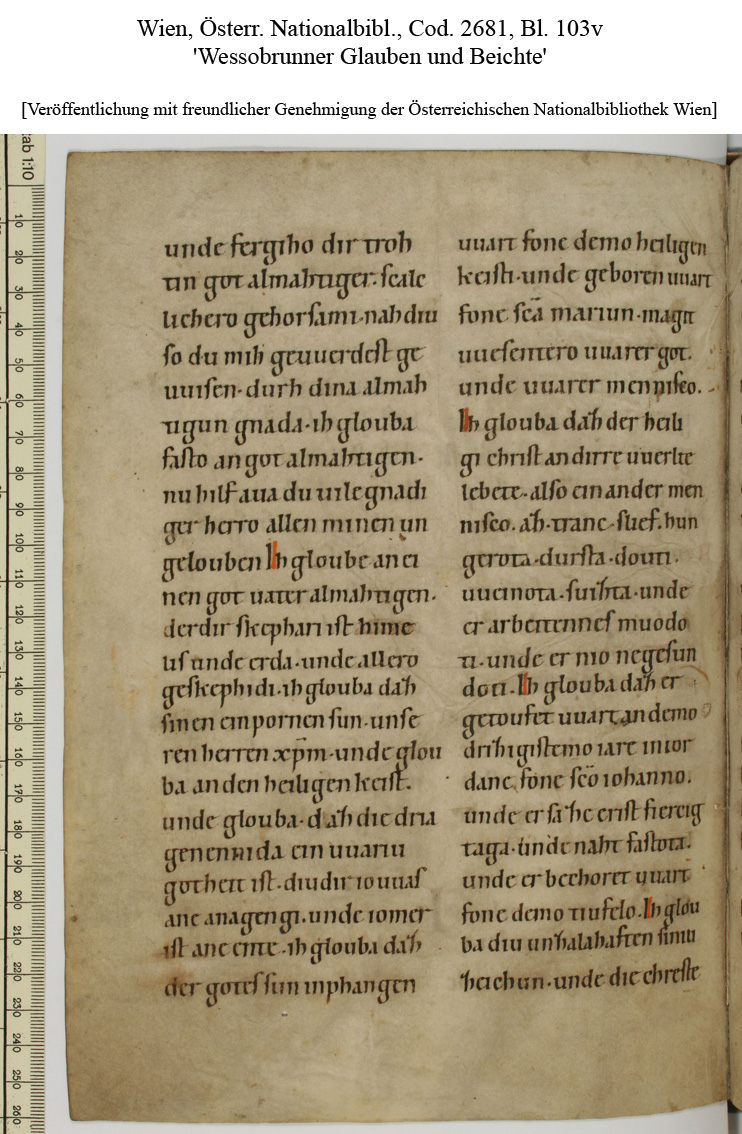 Wien, Österr. Nationalbibl., Cod. 2681, Bl. 103v
'Wessobrunner Glauben und Beichte'
[Veröffentlichung mit freundlicher Genehmigung der Österreichischen Nationalbibliothek Wien]
unde fergiho dir troh
tin got almahtiger. ſcalc
lichero gehorſami. nah diu
ſo du mih geuuerdeſt ge
uuiſen. durh dina almah
tigun gnada. ih glouba
faſto an got almahtigen.
nu hilf aua du uile gnadi
ger herro allen minen un
gelouben Ih gloube an ei
nen got uater almahtigen.
der dir ſkephari iſt hime
liſ unde erda. unde allero
geſkephidi. ih glouba daƷ
ſinen einpornen ſun. unſe
ren herren xp̄m. unde glou
ba an den heiligen keiſt.
unde glouba. daƷ die dria
genennida ein uuariu
gotheit iſt. diudir io uuaſ
ane anagengi. unde iomer
iſt ane ente. ih glouba daƷ
der goteſ ſun inphangen
uuart fone demo heiligen
keiſti. unde geboren uuart
fone ſc̄a mariun. magit
uueſentero uuarer got.
unde uuarer menniſco.
Ih glouba daƷ der heili
gi chriſt an dirre uuerlte
lebete. alſo ein ander men
niſco. aƷ. tranc. ſlief. hun
gerota. durſta. douti.
uueinota. ſuiƷta. unde
er arbeitenneſ muodo
ti. unde er nio negeſun
doti. Ih glouba daƷ er
getoufet uuart an demo
driƷigiſtemo iare in ior
dane. fone ſc̄o iohanno.
unde er faƷte eriſt fiercig
taga. unde naht faſtota.
unde er bechoret uuart
fone demo tiufelo. Ih glou
ba diu unƷalahaften ſiniu
Ʒeichun. unde die chreſte